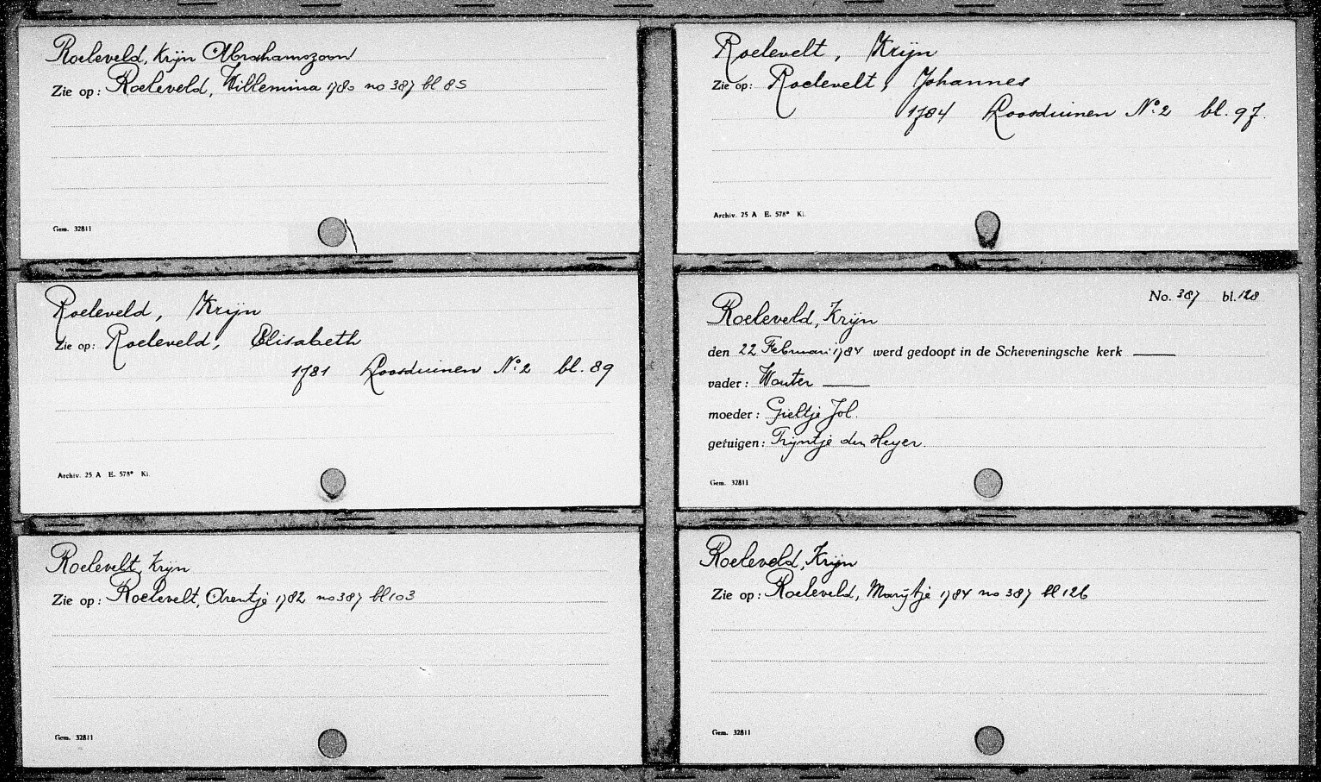 Roeleveld, Krijn Abrahamszoon
Zie op: Roeleveld, Willemina 1780 no 387 bl 85
Gem. 32811
Roeleveld, Krijn
Zie op: Roeleveld, Elisabeth
1781 Loosduinen No. 2 bl. 89
Archiv. 25 A E. 578* Ki.
Roelevelt, Krijn
Zie op: Roelevelt, Arentje 1782 no 387 bl 103
Gem. 32811
Roelevelt, Krijn
Zie op: Roelevelt, Johannes
1784 Loosduinen No. 2 bl. 97.
Archiv. 25 A E. 578* Ki.
No. 387 bl. 128
Roeleveld, Krijn
den 22 Februari 1784 werd gedoopt in de Scheveningsche kerk
vader: Wouter
moeder: Gieltje Jol.
getuigen: Trijntje den Heyer.
Gem. 32811
Roeleveld, Krijn
Zie op: Roeleveld, Marijtje 1784 no 387 bl 126
Gem. 32811